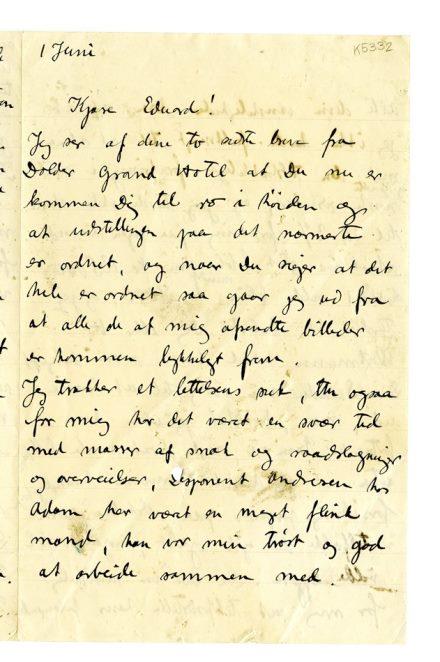 1 Juni
K5332
Kjære Eduard!
Jeg ser af dine to sidste breve fra
Dolder Grand Hotel at Du nu er
kommen Dig til ro i höiden og
at udstillingen paa det nærmeste
er ordnet, og naar Du siger at det
hele er ordnet saa gaar jeg ud fra
at alle de af mig afsendte billeder
er kommen lykkeligt frem.
Jeg trækker et lettelsens suk, thi ogsaa
for mig har det været en svær tid
med masser af snak og raadslagninger
og overveielser, Disponent Andresen hos
Adam har været en meget flink
mand, han var min tröst og god
at arbeide sammen med.